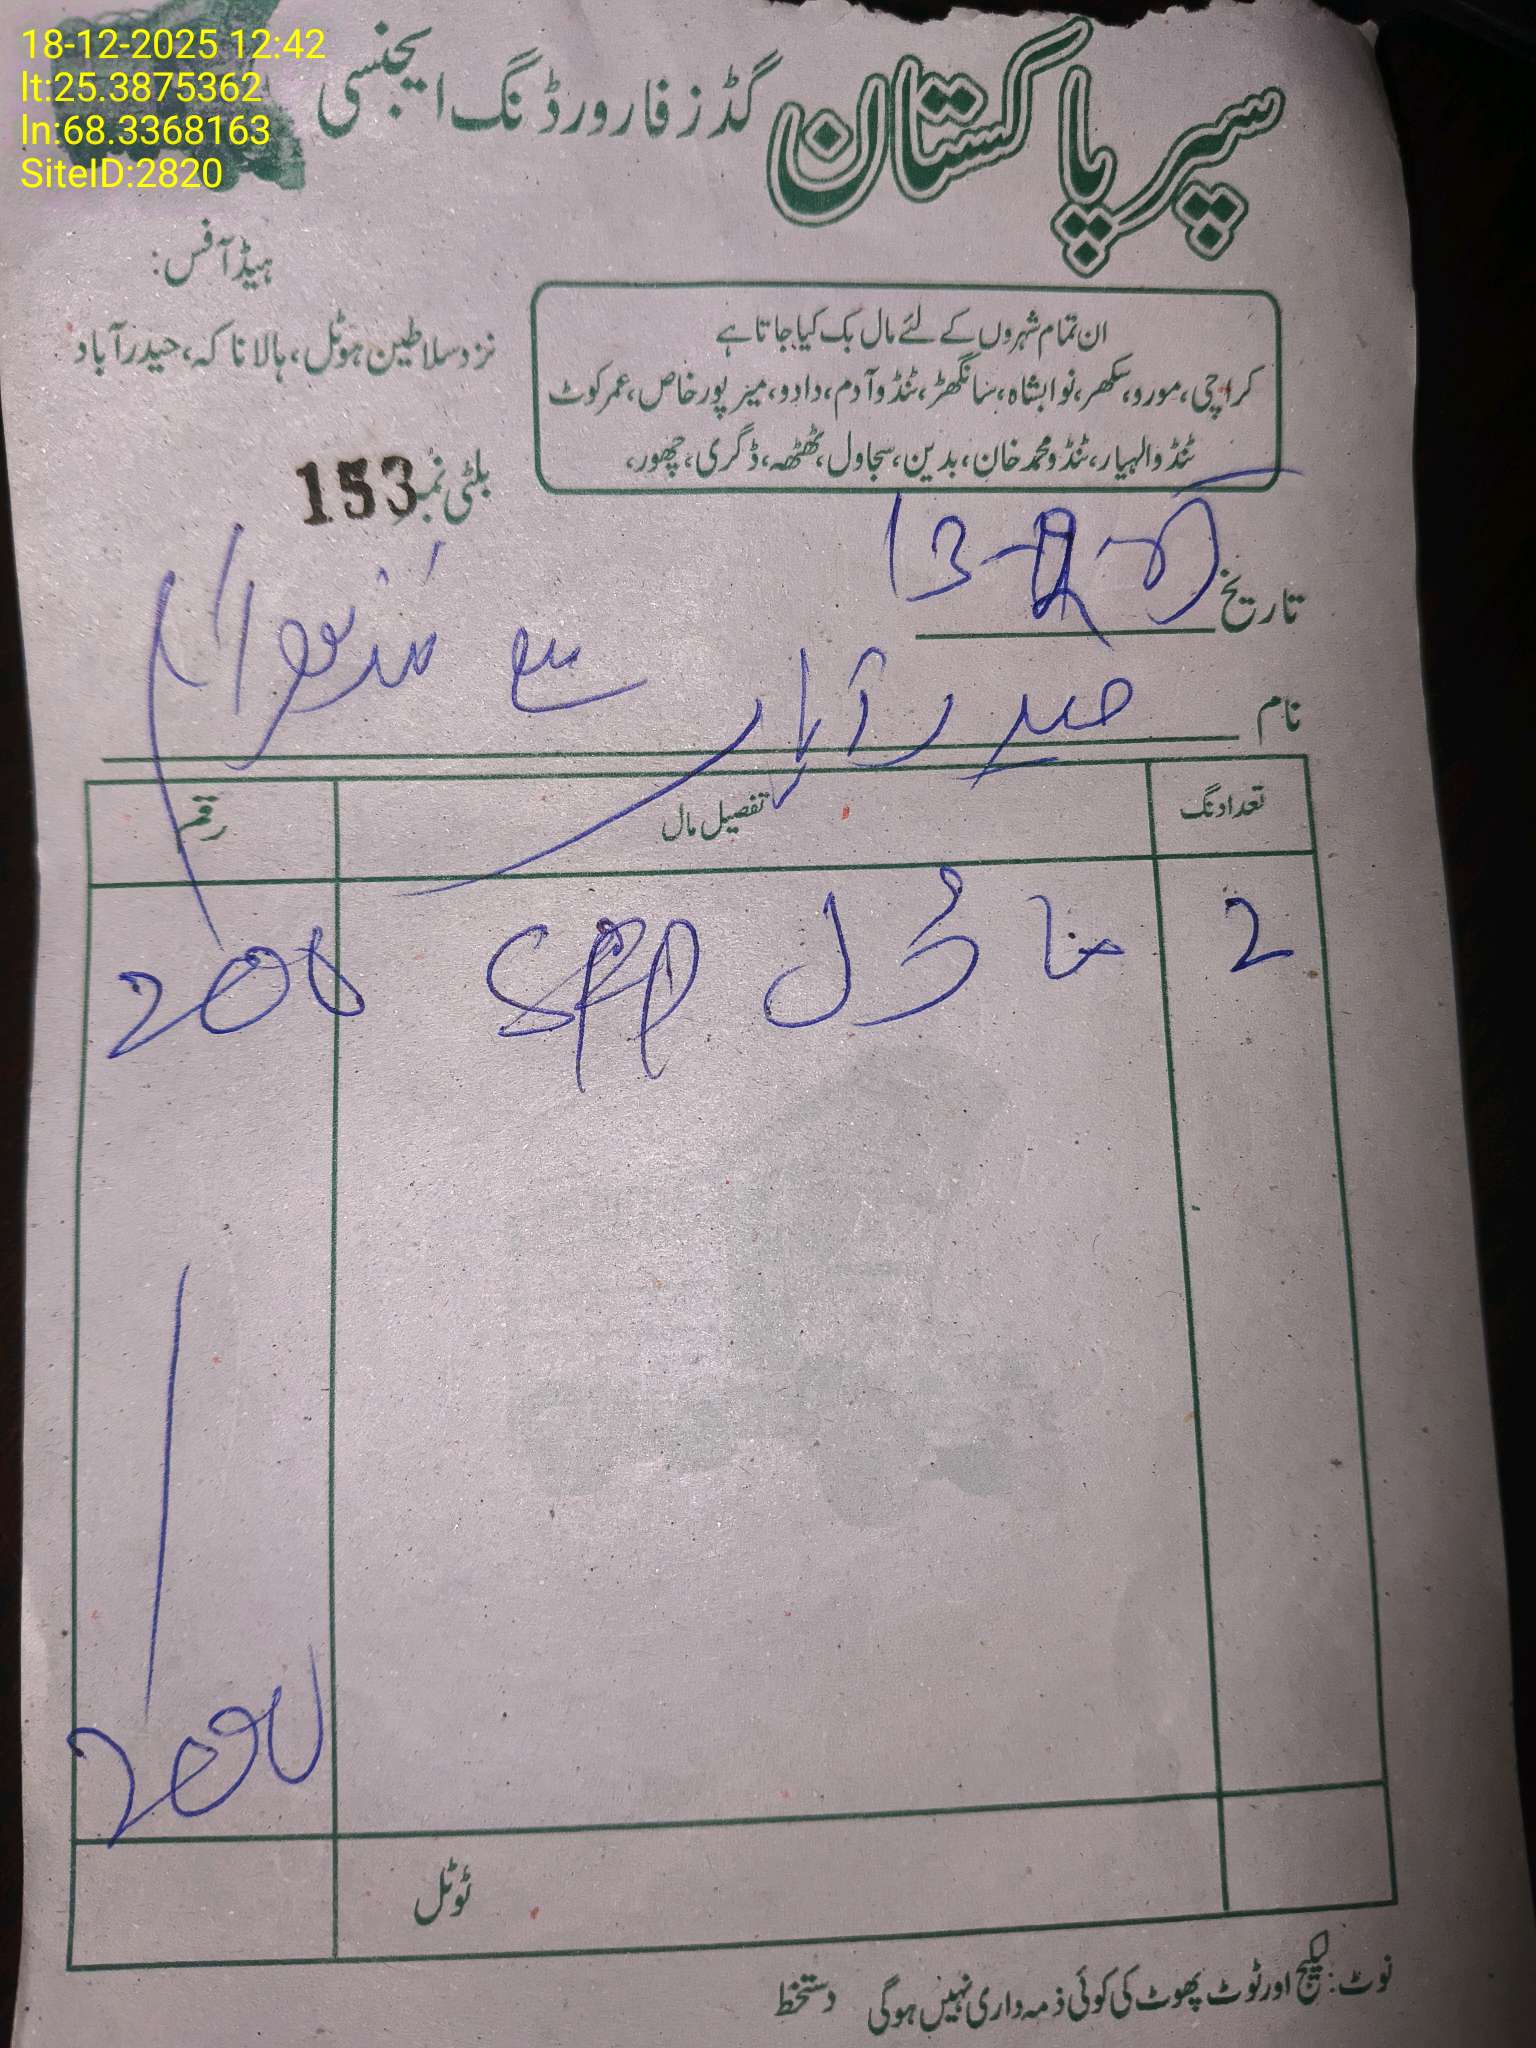 18-12-2025 12:42
lt:25.3875362
ln:68.3368163
SiteID:2820
سپر پاکستان گڈز فارورڈنگ ایجنسی
ہیڈ آفس:
نزد سلاطین ہوٹل، ہالا ناکہ، حیدرآباد
ان تمام شہروں کے لئے مال بک کیا جاتا ہے
کراچی، مورو، سکھر، نوابشاہ، سانگھڑ، ٹنڈوآدم، دادو، میرپورخاص، عمرکوٹ
ٹنڈوالہیار، ٹنڈومحمدخان، بدین، سجاول، ٹھٹھہ، ڈگری، چھور،
بلٹی نمبر 153
تاریخ 13-
نام حیدرآباد سے
تعداد نگ تفصیل مال رقم
2 ماڈل SPP 200
200
ٹوٹل
نوٹ: لیکج اور ٹوٹ پھوٹ کی کوئی ذمہ داری نہیں ہوگی دستخط